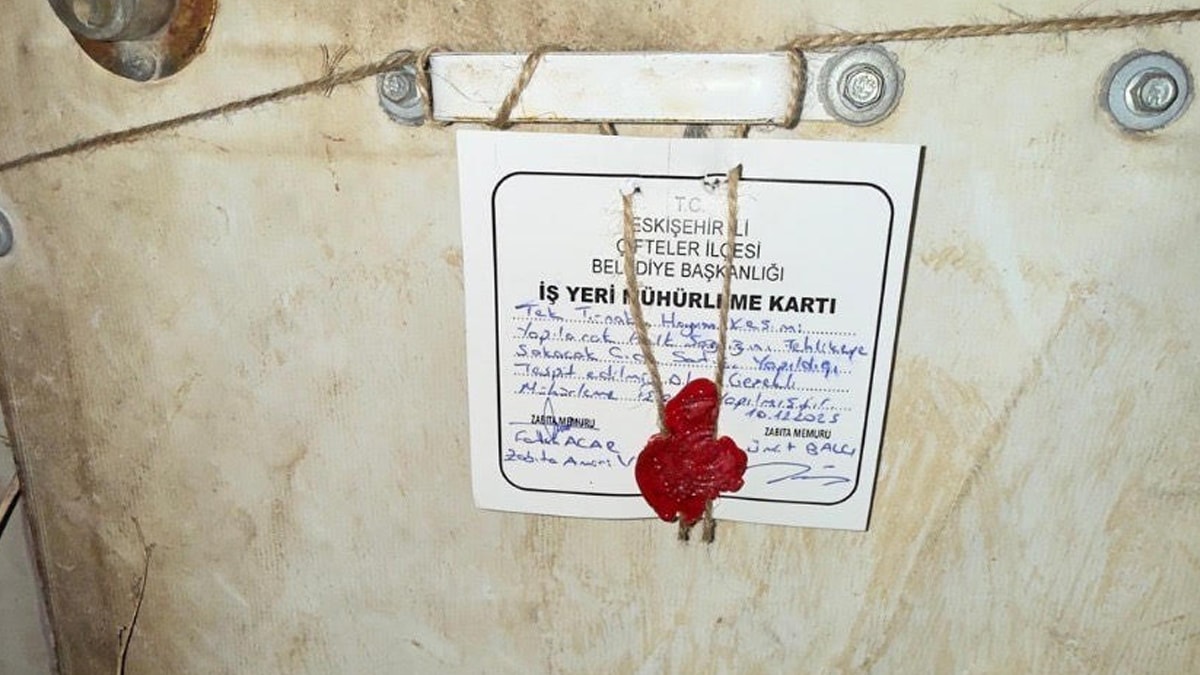 T.C.
ESKİŞEHİR İLİ
ÇİFTELER İLÇESİ
BELEDİYE BAŞKANLIĞI
İŞ YERİ MÜHÜRLEME KARTI
Tek Tırnaklı Hayvan Kesimi
Yapılarak Halk Sağlığını Tehlikeye
Sokacak Satış Yapıldığı
Tespit edilmiş olup Gerekli
Mühürleme Yapılmıştır
10.12.2025
ZABITA MEMURU
ZABITA MEMURU
Fatih ACAR
Ümit BALCI
Zabıta Amiri V